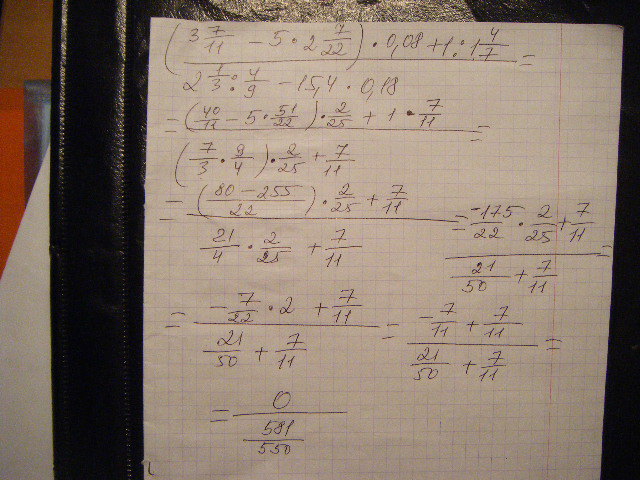 (3 7/11 - 5 · 2 7/22) · 0,08 + 1 : 1 4/7 =
2 1/3 : 4/9 - 15,4 · 0,18
= (40/11 - 5 · 51/22) · 2/25 + 1 · 7/11 =
(7/3 · 9/4) · 2/25 + 7/11
= ((80 - 255)/22) · 2/25 + 7/11 = -175/22 · 2/25 + 7/11 =
21/4 · 2/25 + 7/11 21/50 + 7/11
= -7/22 · 2 + 7/11 = -7/11 + 7/11 =
21/50 + 7/11 21/50 + 7/11
= 0
581/550